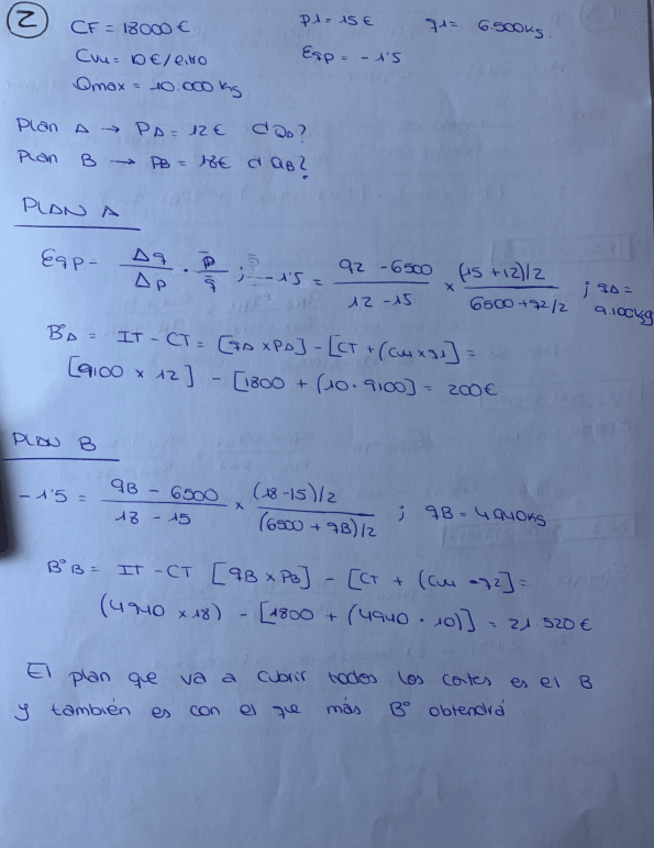 2 CF = 18000 € P1 = 15 € q1 = 6.500 kg.
Cvu = 10 €/euro Eqp = -1'5
Qmax = 10.000 kg
Plan A → PA = 12 € d QA?
Plan B → PB = 18€ d QB?
PLAN A
Eqp = Δq/Δp · p̄/q̄ ; -1'5 = q2 - 6500 / 12 - 15 × (15 + 12)/2 / 6500 + q2/2 ; qA = 9.100kg
BºA = IT - CT = [qA × PA] - [CT + (Cvu × q1] =
[9100 × 12] - [1800 + (10 · 9100] = 200€
PLAN B
-1'5 = qB - 6500 / 18 - 15 × (18 - 15)/2 / (6500 + qB)/2 ; qB = 4940kg
BºB = IT - CT [qB × PB] - [CT + (Cvu - q2] =
(4940 × 18) - [1800 + (4940 · 10)] = 21.520 €
El plan que va a cubrir todos los costes es el B
y también es con el que más Bº obtendrá